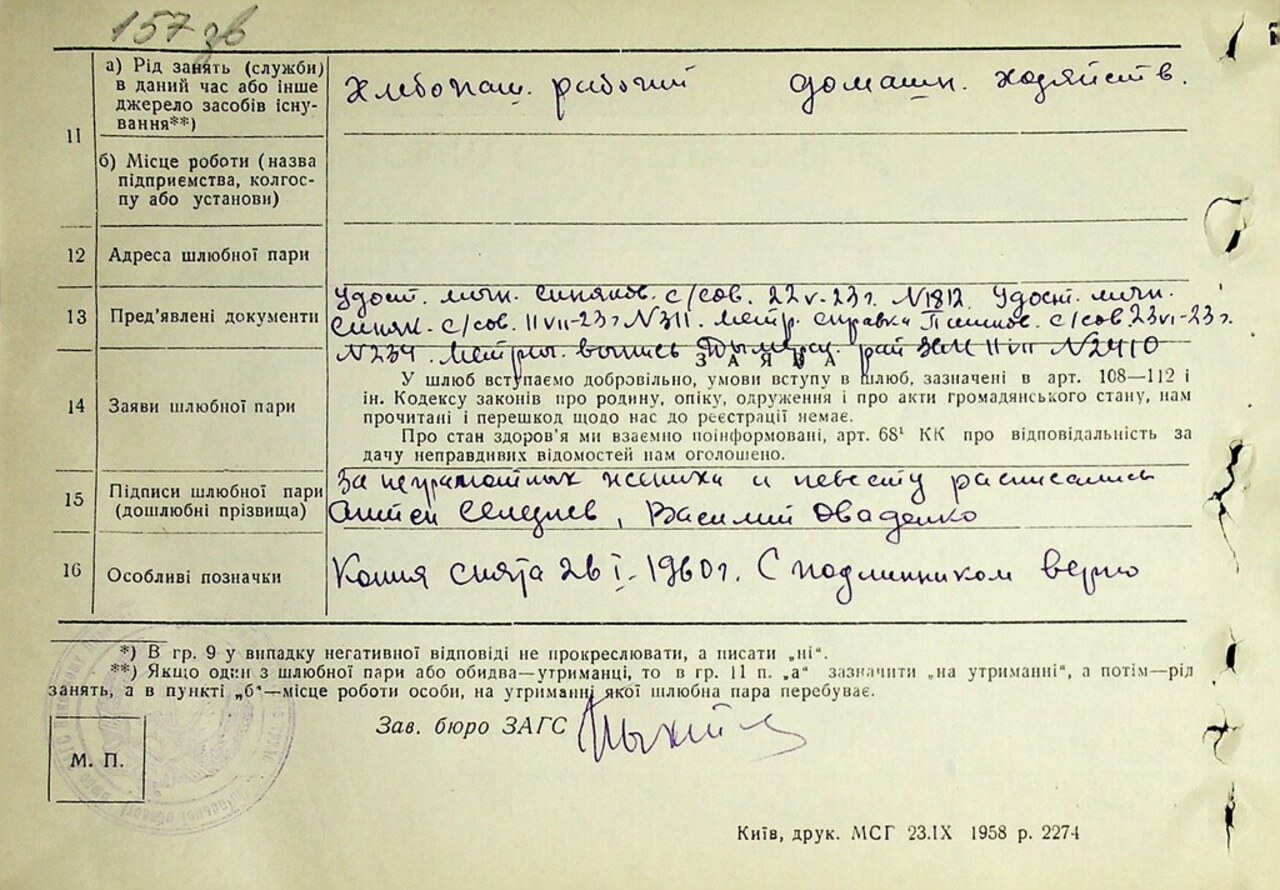 157 зв
11
а) Рід занять (служби)
в даний час або інше
джерело засобів існу-
вання**)
Хлебопаш. рабочий домашн. хозяйств.
б) Місце роботи (назва
підприємства, колгос-
пу або установи)
12 Адреса шлюбної пари
13 Пред'явлені документи
Удост. личн. Синяков. с/сов. 22 V-23 г. №1812. Удост. личн.
Синяк. с/сов. 11 VII-23 г №311. Метр. справка с/сов. 23 VI-23 г.
№234. Метрич. выпись Дымерск. рай 11 VII №2410
ЗАЯВА
14 Заяви шлюбної пари
У шлюб вступаємо добровільно, умови вступу в шлюб, зазначені в арт. 108—112 і
ін. Кодексу законів про родину, опіку, одруження і про акти громадянського стану, нам
прочитані і перешкод щодо нас до реєстрації немає.
Про стан здоров'я ми взаємно поінформовані, арт. 68¹ КК про відповідальність за
дачу неправдивих відомостей нам оголошено.
15 Підписи шлюбної пари
(дошлюбні прізвища)
За неграмотных жениха и невесту расписались
Селезнев, Василий Оваденко
16 Особливі позначки
Копия снята 26 I-1960 г. С подлинником верно
*) В гр. 9 у випадку негативної відповіді не прокреслювати, а писати „ні“.
**) Якщо один з шлюбної пари або обидва—утриманці, то в гр. 11 п. „а“ зазначити „на утриманні“, а потім—рід
занять, а в пункті „б“—місце роботи особи, на утриманні якої шлюбна пара перебуває.
Зав. бюро ЗАГС
М. П.
Київ, друк. МСГ 23.IX 1958 р. 2274